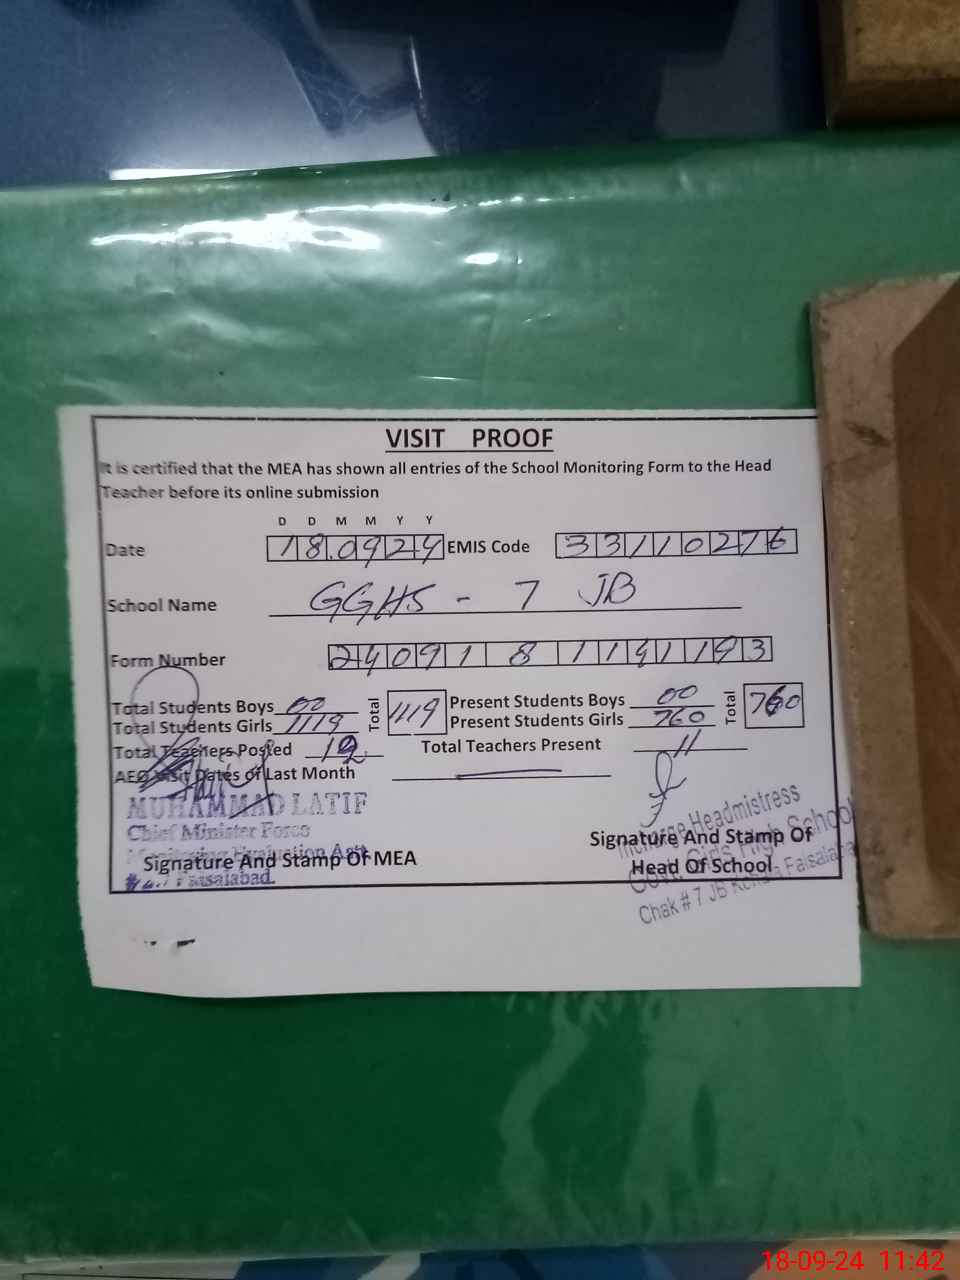 VISIT PROOF
It is certified that the MEA has shown all entries of the School Monitoring Form to the Head
Teacher before its online submission
D D M M Y Y
Date 18.0924 EMIS Code 33110276
School Name GGHS - 7 JB
Form Number
Total Students Boys 00 Total 1119 Present Students Boys 00 Total 760
Total Students Girls 1119 Present Students Girls 760
Total Teachers Posted 12 Total Teachers Present 11
AEO Visit Dates of Last Month
MUHAMMAD LATIF
Chief Minister Force
Monitoring Evaluation
Signature And Stamp Of MEA
Faisalabad.
Incharge Headmistress
Signature And Stamp Of
Govt. Girls High School
Head Of School
Chak # 7 JB Faisalabad
18-09-24 11:42